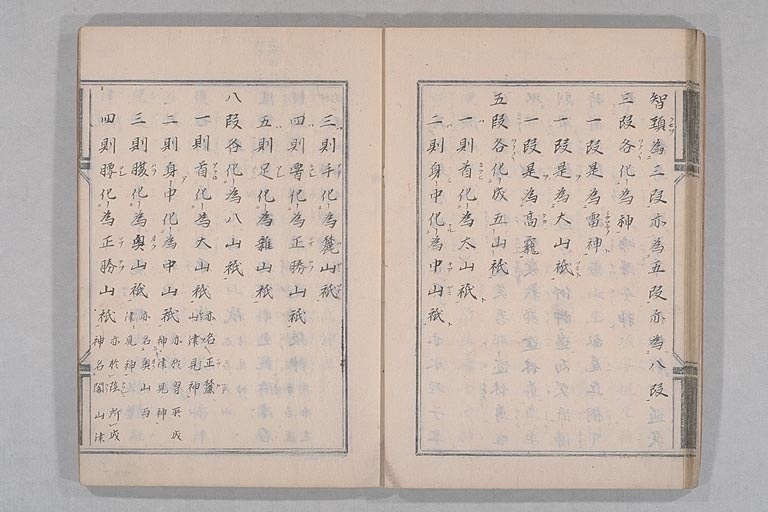 智頭為三段亦為五段亦為八段
三段各化為神
一段是為雷神
一段是為大山祇
一段是為高龗
五段各化成五山祇
一則首化為大山祇
二則身中化為中山祇
三則手化為麓山祇
四則腰化為正勝山祇
五則足化為䨄山祇
八段各化為八山祇
一則首化為大山祇 亦名正鹿山津見神
二則身中化為中山祇 亦於胸所成神津見神
三則腹化為奥山祇 亦名奥山西津見神
四則腰化為正勝山祇 亦於陰所成神名闇山津